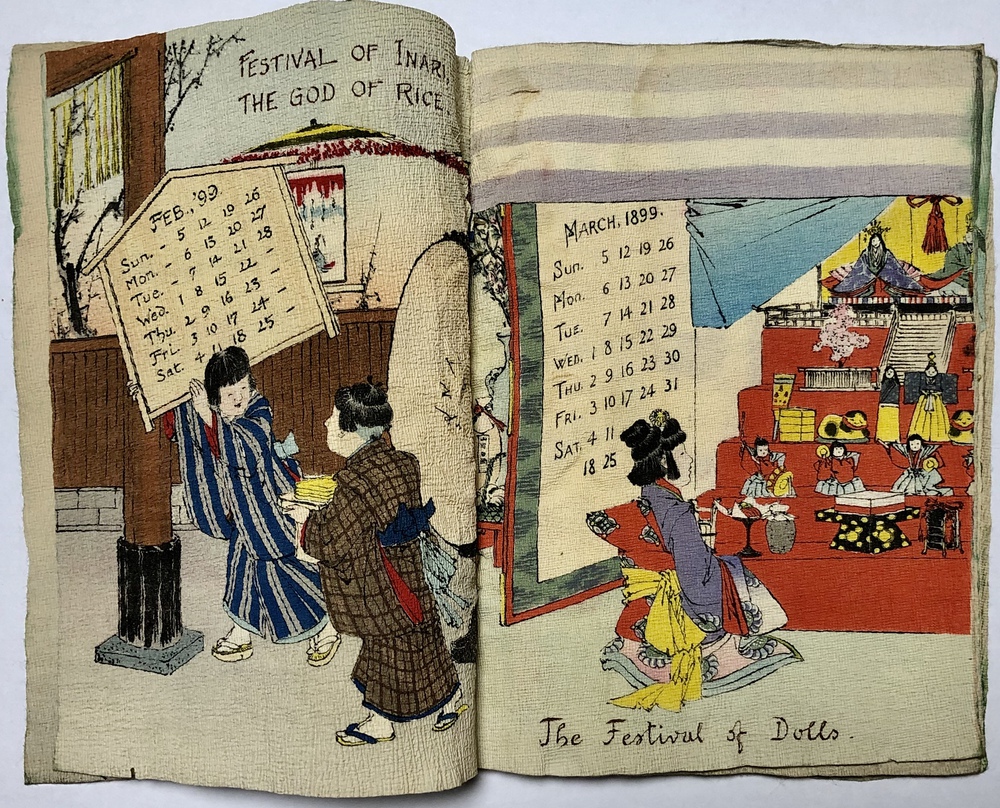 FESTIVAL OF INARI,
THE GOD OF RICE.
FEB., '99
Sun. - 5 12 19 26
Mon. - 6 13 20 27
Tue. - 7 14 21 28
Wed. 1 8 15 22 -
Thu. 2 9 16 23 -
Fri. 3 10 17 24 -
Sat. 4 11 18 25 -
MARCH, 1899.
Sun. 5 12 19 26
Mon. 6 13 20 27
Tue. 7 14 21 28
Wed. 1 8 15 22 29
Thu. 2 9 16 23 30
Fri. 3 10 17 24 31
Sat. 4 11
18 25
The Festival of Dolls.